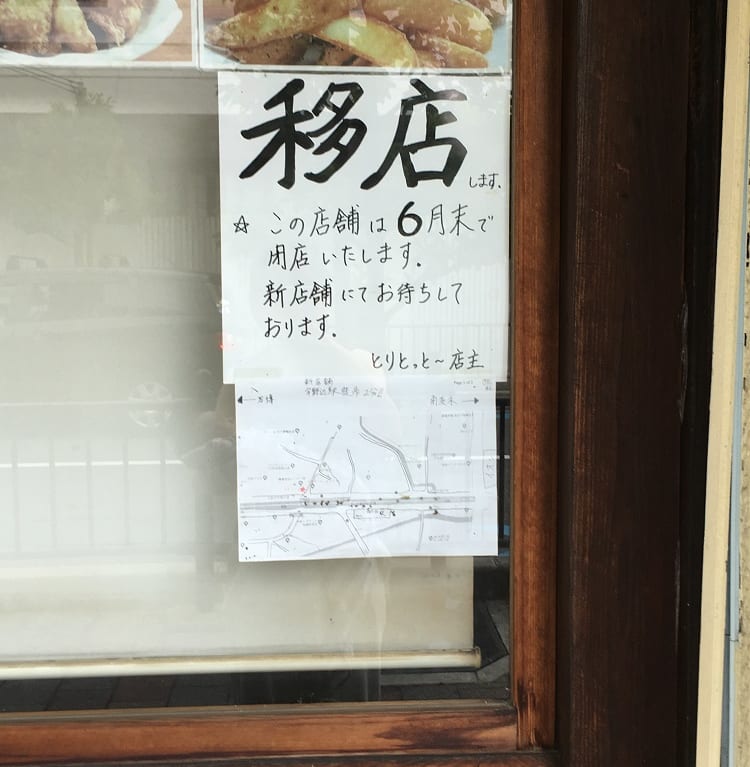 移店
します.
☆ この店舗は6月末で
閉店いたします.
新店舗にてお待ちして
おります.
とりとっと〜店主
新店舗
Page 1 of 1